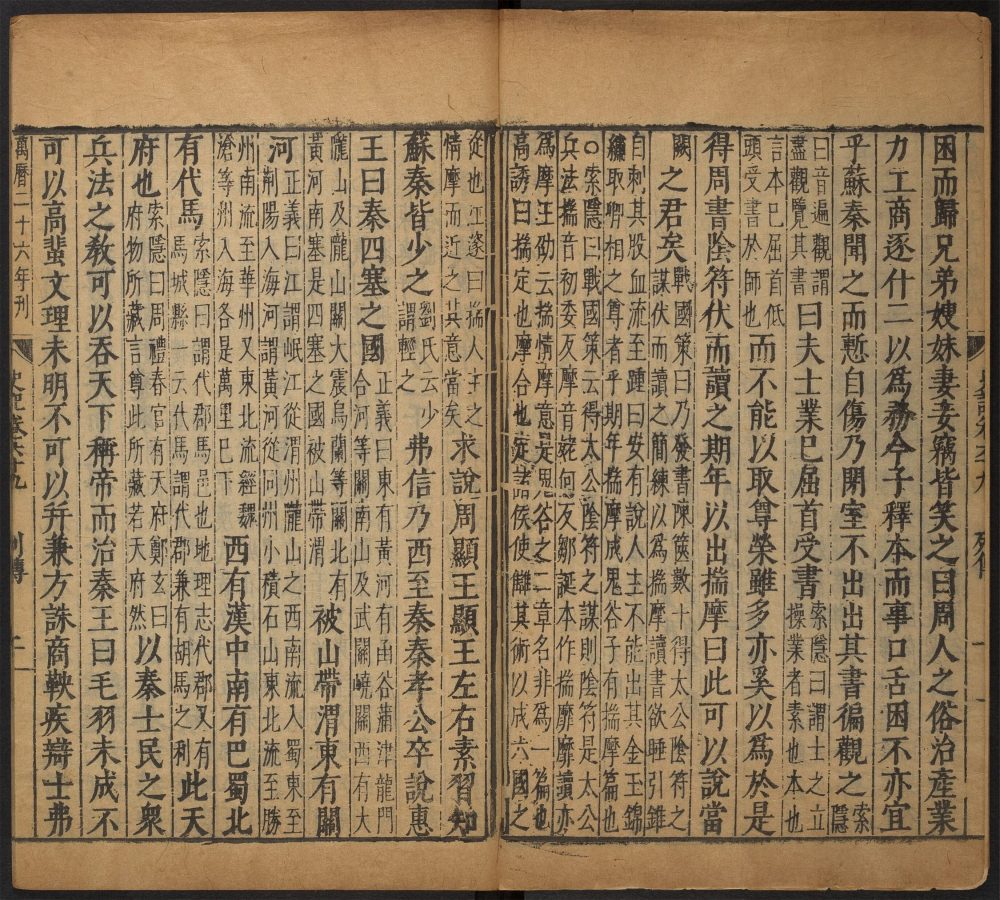 困而歸兄弟嫂妹妻妾竊皆笑之曰周人之俗治產業
力工商逐什二以爲務今子釋本而事口舌困不亦宜
乎蘇秦聞之而慙自傷乃閉室不出出其書徧觀之索隱
曰音遍觀謂盡觀覽其書曰夫士業已屈首受書索隱曰謂士之立操業者素也本也
言本已屈首低頭受書於師也而不能以取尊榮雖多亦奚以爲於是
得周書陰符伏而讀之期年以出揣摩曰此可以說當
世之君矣戰國策曰乃發書陳篋數十得太公陰符之謀伏而讀之簡練以爲揣摩讀書欲睡引錐
自刺其股血流至踵曰安有說人主不能出其金玉錦繡取卿相之尊者乎期年揣摩成鬼谷子有揣摩篇也
○索隱曰戰國策云得太公陰符之謀則陰符是太公兵法揣音初委反摩音姥何反鄒誕本作揣靡靡讀亦
爲摩王劭云揣情摩意是鬼谷之二章名非爲一篇也高誘曰揣定也摩合也定諸侯使讎其術以成六國之
從也江邃曰揣人主之情摩而近之其意當矣求說周顯王顯王左右素習知
蘇秦皆少之劉氏云少謂輕之弗信乃西至秦秦孝公卒說惠
王曰秦四塞之國正義曰東有黃河有函谷蒲津龍門合河等關南山及武關嶢關西有大
隴山及隴山關大震烏蘭等關北有黃河南塞是四塞之國被山帶渭被山帶渭東有關
河正義曰江謂岷江從渭州隴山之西南流入蜀東至荆陽入海河謂黃河從同州小積石山東北流至勝
州南流至華州又東北流經魏滄等州入海各是萬里已下西有漢中南有巴蜀北
有代馬索隱曰謂代郡馬邑也地理志代郡又有馬城縣一云代馬謂代郡兼有胡馬之利此天
府也索隱曰周禮春官有天府鄭玄曰府物所藏言尊此所藏若天府然以秦士民之衆
兵法之敎可以吞天下稱帝而治秦王曰毛羽未成不
可以高蜚文理未明不可以幷兼方誅商鞅疾辯士弗
萬曆二十六年刊
史記卷六十九
列傳